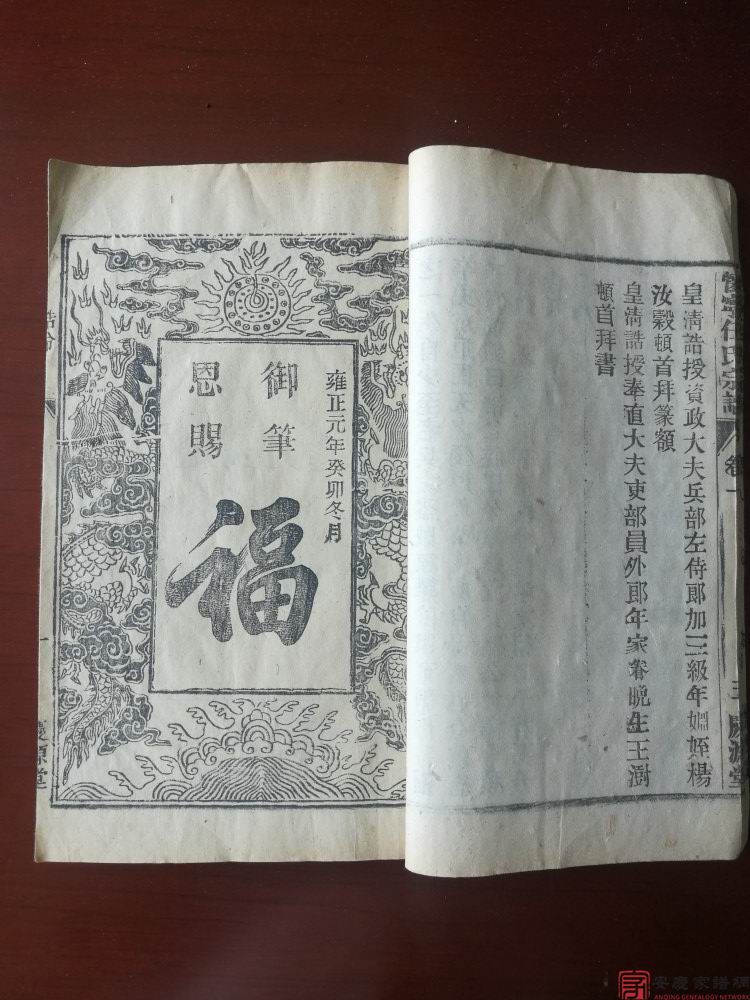 懷寧任氏宗譜
卷一
三
慶源堂
皇清誥授資政大夫兵部左侍郎加三級年姻姪楊
汝穀頓首拜篆額
皇清誥授奉直大夫吏部員外郎年家眷晚生王澍
頓首拜書
雍正元年癸卯冬月
御筆
恩賜
福
誥命
一
慶源堂
安慶家譜網
ANQING GENEALOGY NETWORK